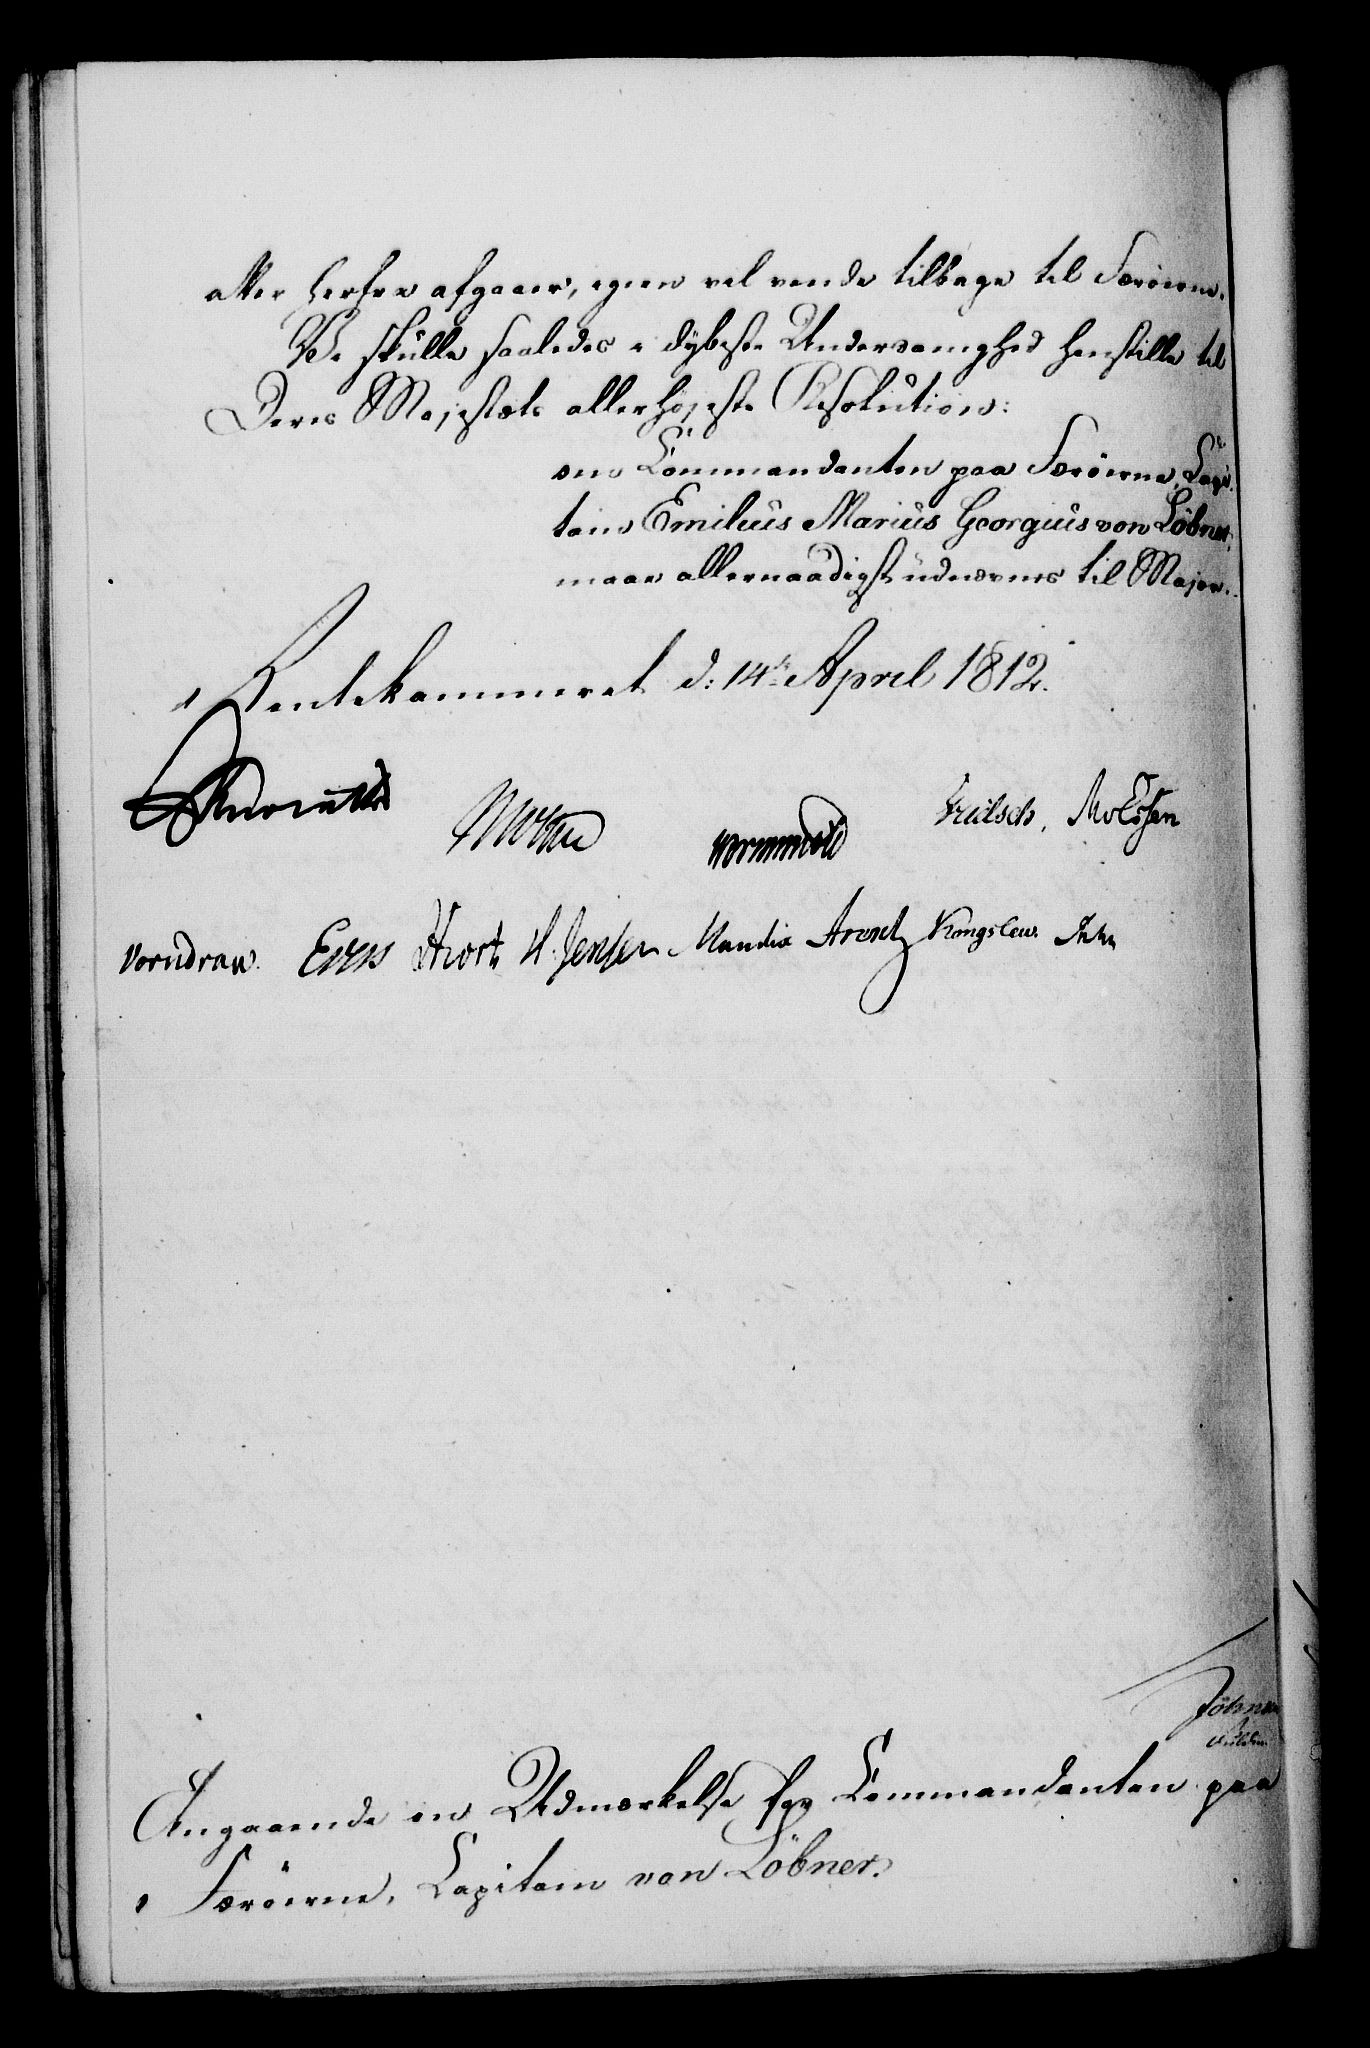 atter herfra afgaaer, igien vel vende tilbage til Færöerne.
Vi skulle saaledes i dybeste Underdanighed henstille til
Deres Majestæts allerhöjeste Resolution:
om Commandanten paa Færöerne, Capi-
tain Emilius Marius Georgius von Löbner,
maae allernaadigst udnævnes til Major.
Rentekammeret d: 14de April 1812.
Wormskiold Fritsch.
Vorndran. Hiort H. Jensen Mandix Arentz Kongslew.
Angaaende en Udmærkelse for Commandanten paa
Færöerne, Capitain von Löbner.